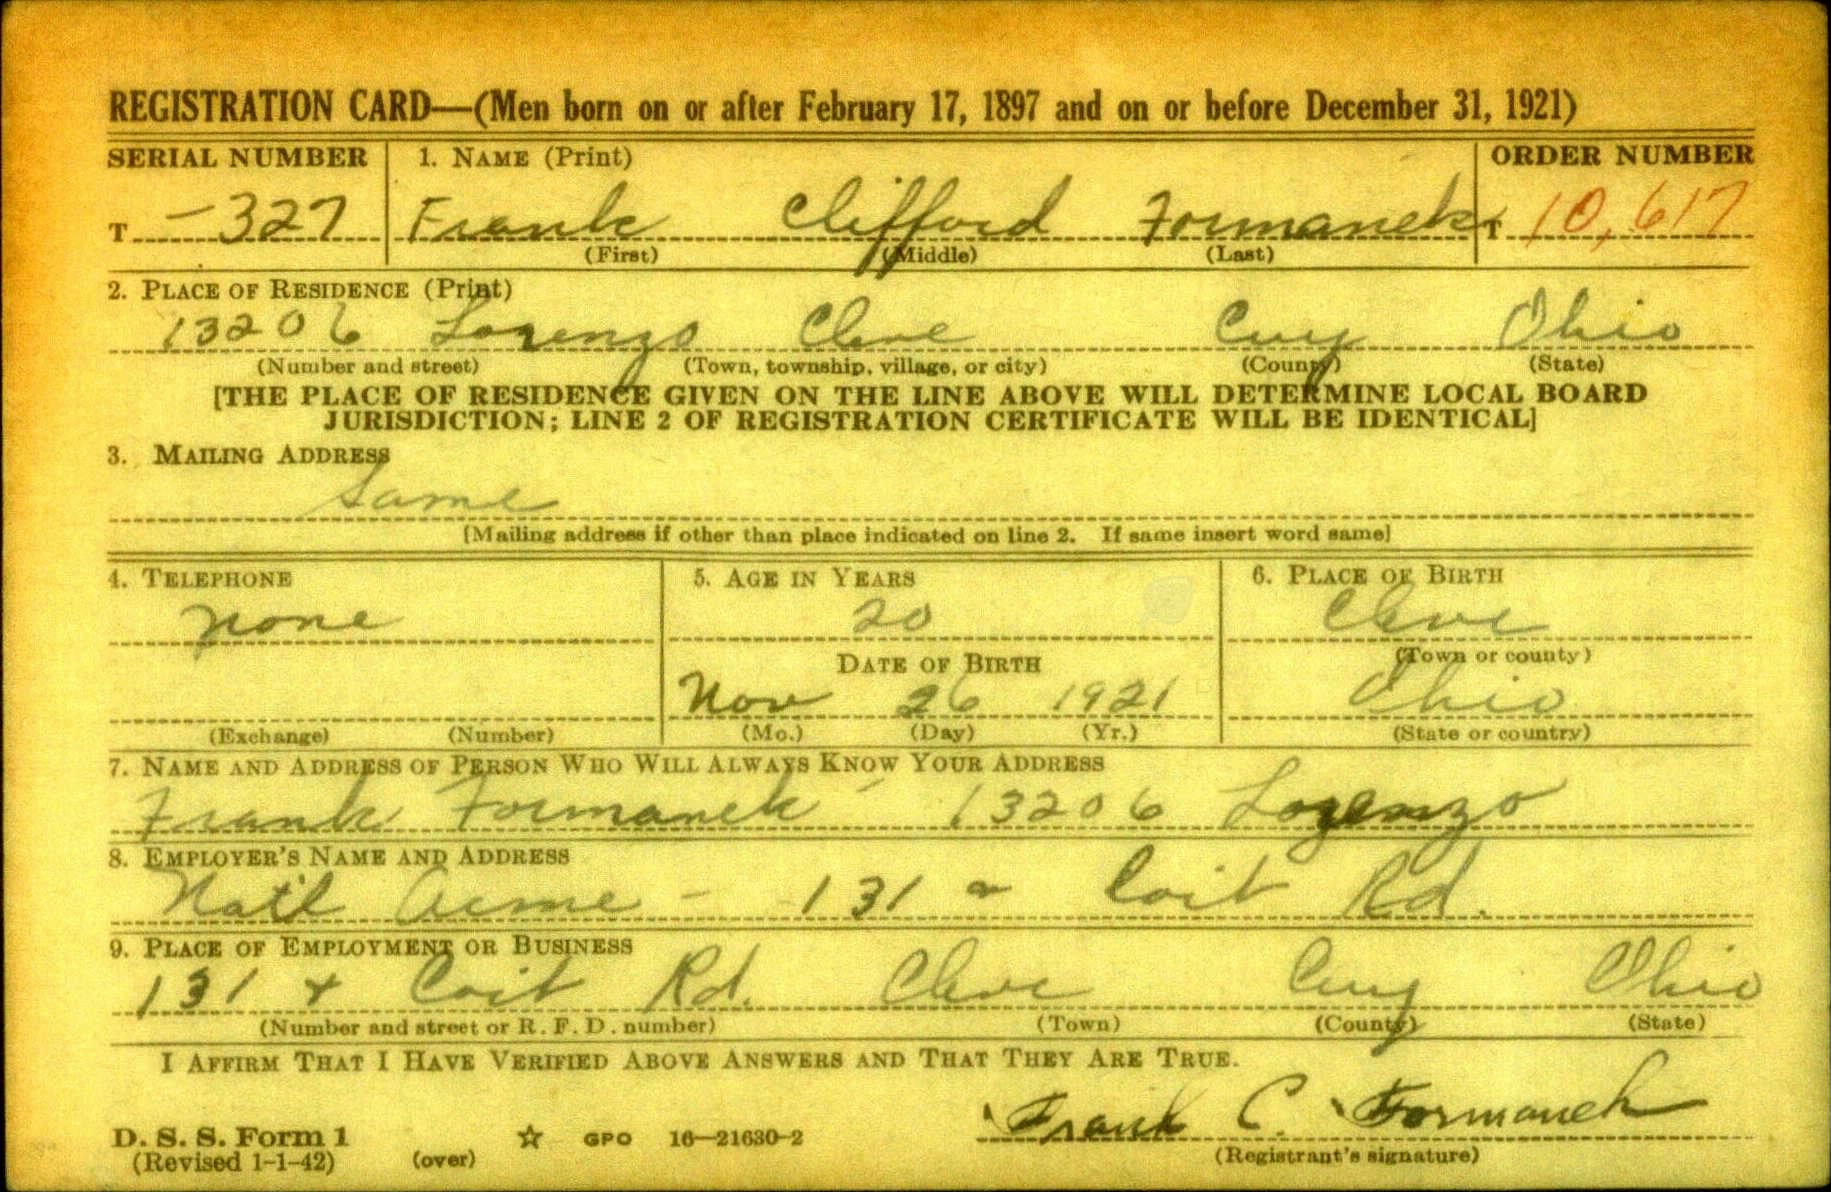 REGISTRATION CARD—(Men born on or after February 17, 1897 and on or before December 31, 1921)
SERIAL NUMBER 1. NAME (Print) ORDER NUMBER
T -327 Frank Clifford Formanek T 10,617
(First) (Middle) (Last)
2. PLACE OF RESIDENCE (Print)
13206 Lorenzo Cleve Cuy Ohio
(Number and street) (Town, township, village, or city) (County) (State)
[THE PLACE OF RESIDENCE GIVEN ON THE LINE ABOVE WILL DETERMINE LOCAL BOARD
JURISDICTION; LINE 2 OF REGISTRATION CERTIFICATE WILL BE IDENTICAL]
3. MAILING ADDRESS
Same
[Mailing address if other than place indicated on line 2. If same insert word same]
4. TELEPHONE 5. AGE IN YEARS 6. PLACE OF BIRTH
None 20 Cleve
DATE OF BIRTH (Town or county)
Nov 26 1921 Ohio
(Exchange) (Number) (Mo.) (Day) (Yr.) (State or country)
7. NAME AND ADDRESS OF PERSON WHO WILL ALWAYS KNOW YOUR ADDRESS
Frank Formanek - 13206 Lorenzo
8. EMPLOYER'S NAME AND ADDRESS
Nat'l Acme - 131 Coit Rd.
9. PLACE OF EMPLOYMENT OR BUSINESS
131 + Coit Rd. Cleve Cuy Ohio
(Number and street or R. F. D. number) (Town) (County) (State)
I AFFIRM THAT I HAVE VERIFIED ABOVE ANSWERS AND THAT THEY ARE TRUE.
Frank C. Formanek
D. S. S. Form 1 ☆ GPO 16—21630-2
(Revised 1-1-42) (over) (Registrant's signature)